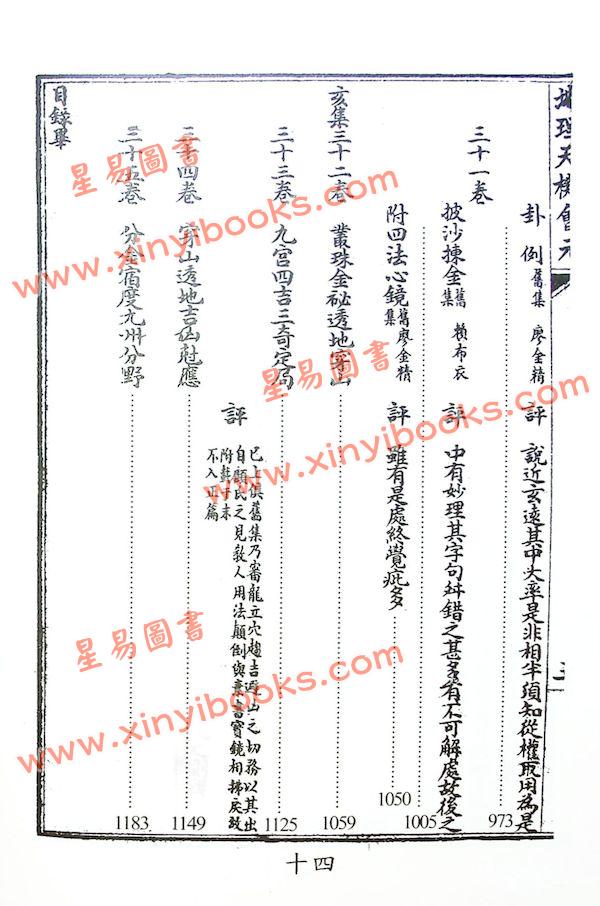 地理天機會元
卦例 舊集 廖金精 評 說近玄遠其中大率是非相半須知從權取用為是 973
三十一卷
披沙揀金 舊集 賴布衣 評 中有妙理其字句舛錯之甚多有不可解處故後之 1005
附四法心鏡 舊集 廖金精 評 雖有是處終覺疵多 1050
亥集三十二卷 叢珠金秘透地穿山 1059
三十三卷 九宮四吉三奇定局 1125
評 已上俱舊集乃審龍立穴趨吉避凶之切務以其出
自顧氏之見教人用法顛倒與書寶鏡相拂戾故
附於末
不入正篇
三十四卷 穿山透地吉凶尅應 1149
三十五卷 分金宿度九州分野 1183
目錄畢
十四
星易圖書
www.xinyibooks.com
星易圖書
www.xinyibooks.com
星易圖書
www.xinyibooks.com